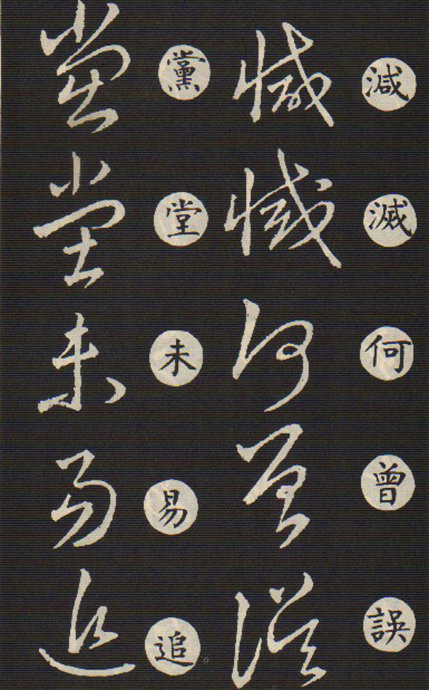 減滅何曾誤
減滅何曾誤
黨堂未易追
黨堂未易追